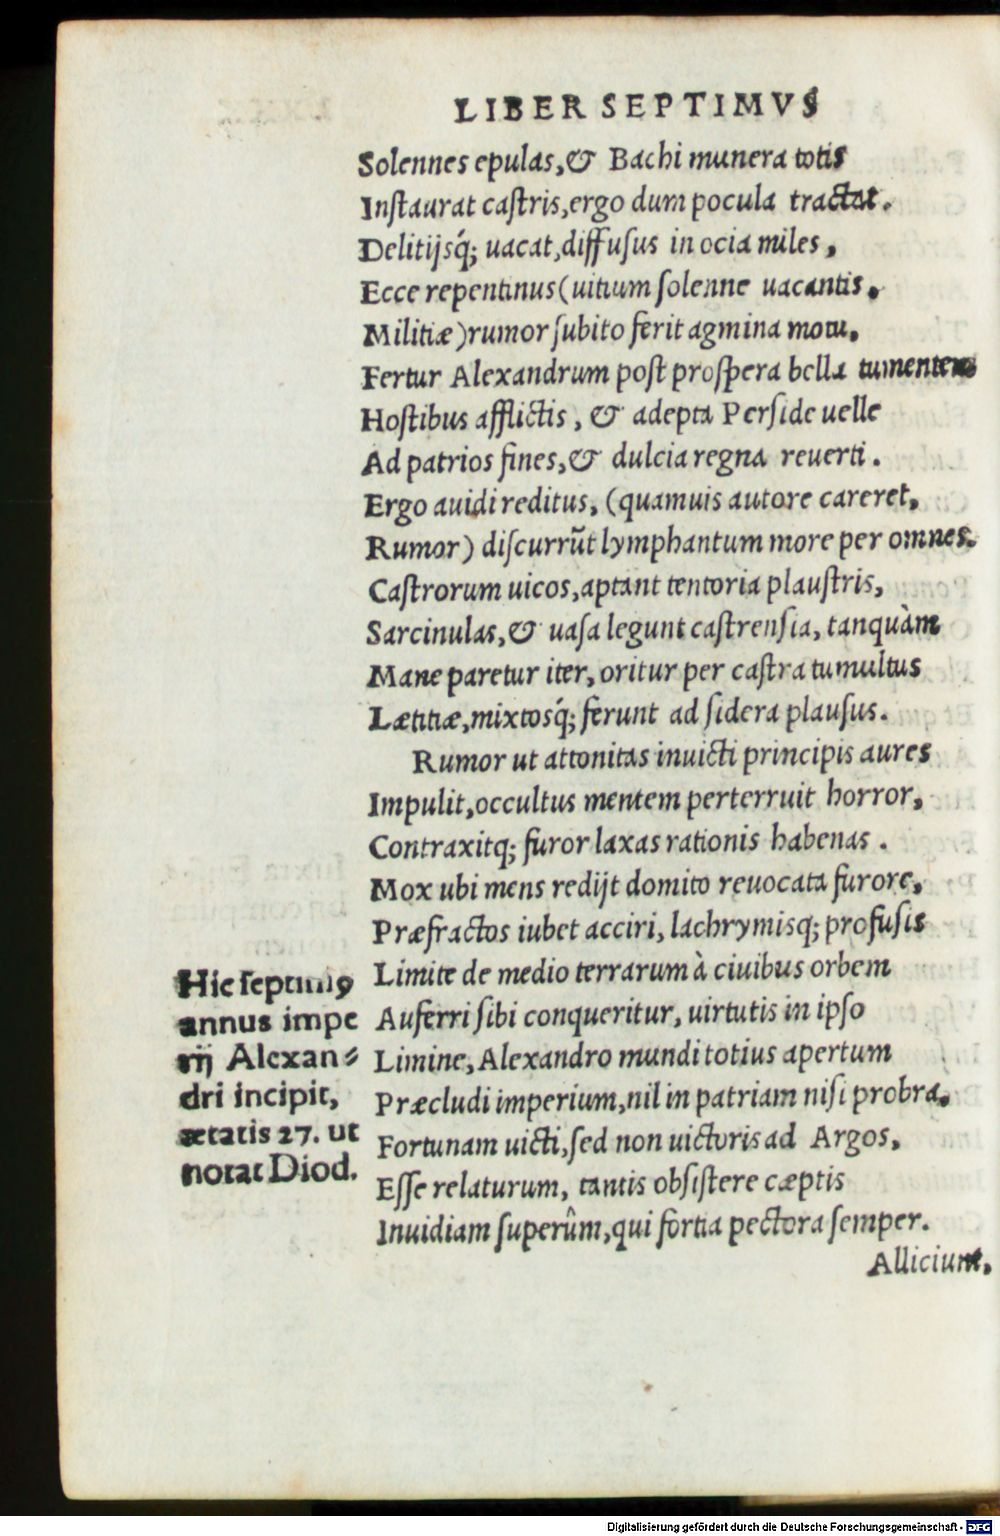 LIBER SEPTIMVS
Solennes epulas,& Bachi munera totis
Instaurat castris,ergo dum pocula tractat.
Delitijsq́; uacat,diffusus in ocia miles,
Ecce repentinus(uitium solenne uacantis.
Militiæ)rumor subito ferit agmina motu.
Fertur Alexandrum post prospera bella tumentem
Hostibus afflictis, & adepta Perside uelle
Ad patrios fines,& dulcia regna reuerti.
Ergo auidi reditus, (quamuis autore careret,
Rumor) discurrũt lymphantum more per omnes.
Castrorum uicos,aptant tentoria plaustris,
Sarcinulas,& uasa legunt castrensia, tanquàm
Mane paretur iter, oritur per castra tumultus
Lætitiæ,mixtosq́; ferunt ad sidera plausus.
Rumor ut attonitas inuicti principis aures
Impulit,occultus mentem perterruit horror,
Contraxitq; furor laxas rationis habenas.
Mox ubi mens redijt domito reuocata furore,
Præfractos iubet acciri, lachrymisq; profusis
Limite de medio terrarum à ciuibus orbem
Auferri sibi conqueritur, uirtutis in ipso
Limine, Alexandro mundi totius apertum
Præcludi imperium,nil in patriam nisi probra.
Fortunam uicti,sed non uictoris ad Argos,
Esse relaturum, tantis obsistere cæptis
Inuidiam superûm,qui fortia pectora semper.
Alliciunt.
Hic septimꝰ
annus impe
rij Alexan⸗
dri incipit,
ætatis 27. ut
notat Diod.
Digitalisierung gefördert durch die Deutsche Forschungsgemeinschaft - DFG